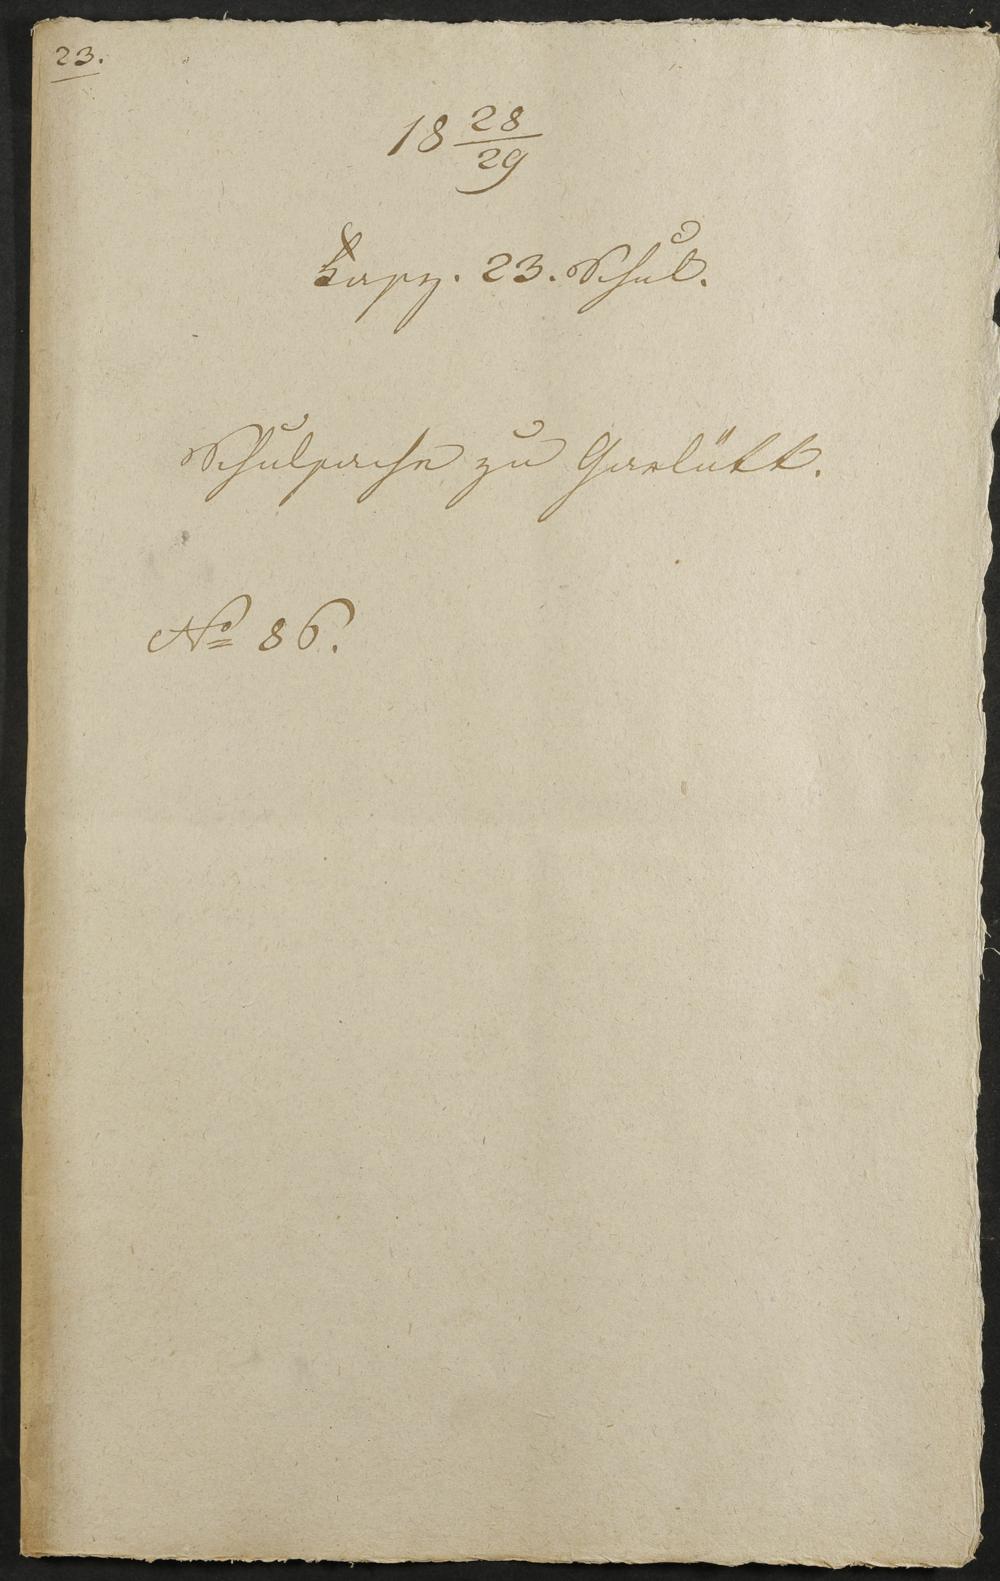 23.
18 28/29
Fasz. 23. Schul.
Schulsache zu Garlütt.
No 86.